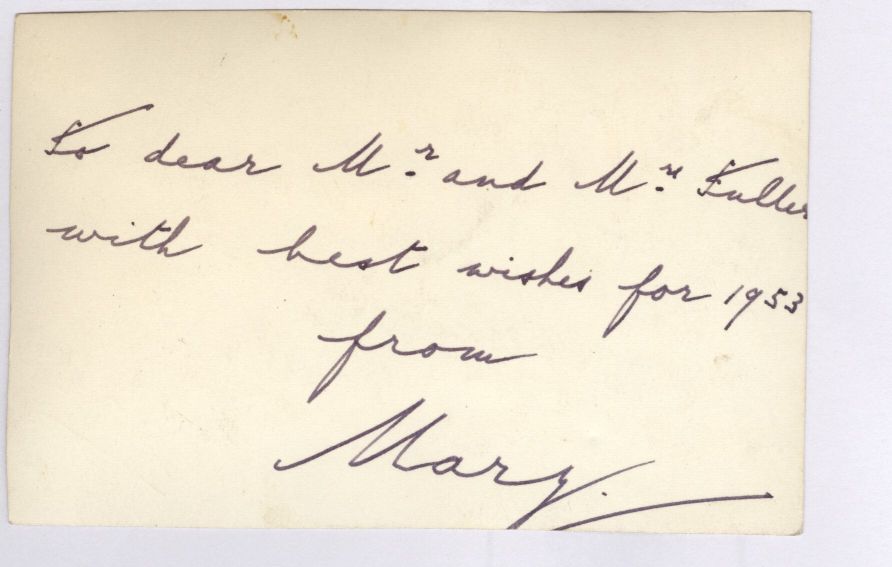 To dear Mr. and Mrs. Fuller
with best wishes for 1953
from
Mary.